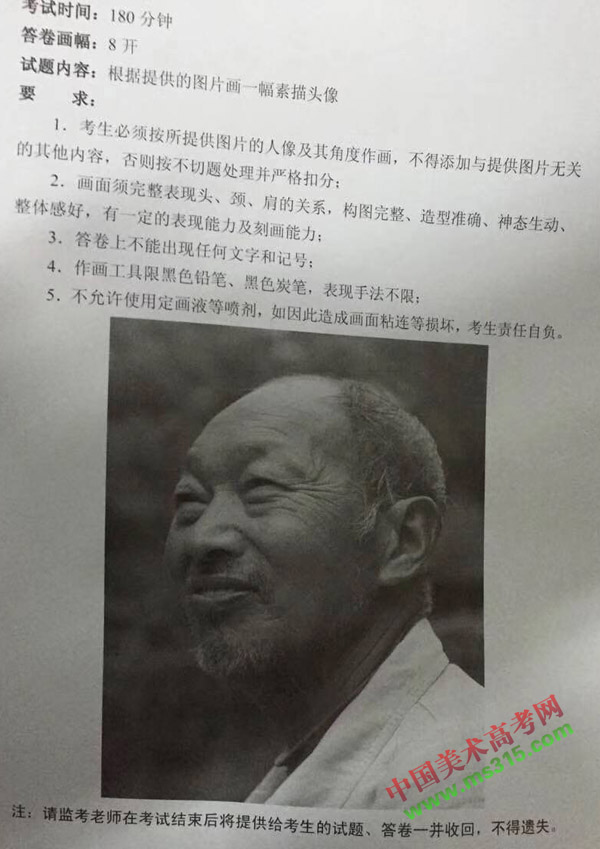 考试时间：180 分钟
答卷画幅：8 开
试题内容：根据提供的图片画一幅素描头像
要 求：
1．考生必须按所提供图片的人像及其角度作画，不得添加与提供图片无关
的其他内容，否则按不切题处理并严格扣分；
2．画面须完整表现头、颈、肩的关系，构图完整、造型准确、神态生动、
整体感好，有一定的表现能力及刻画能力；
3．答卷上不能出现任何文字和记号；
4．作画工具限黑色铅笔、黑色炭笔，表现手法不限；
5．不允许使用定画液等喷剂，如因此造成画面粘连等损坏，考生责任自负。
中国美术高考网
www.ms315.com
注：请监考老师在考试结束后将提供给考生的试题、答卷一并收回，不得遗失。